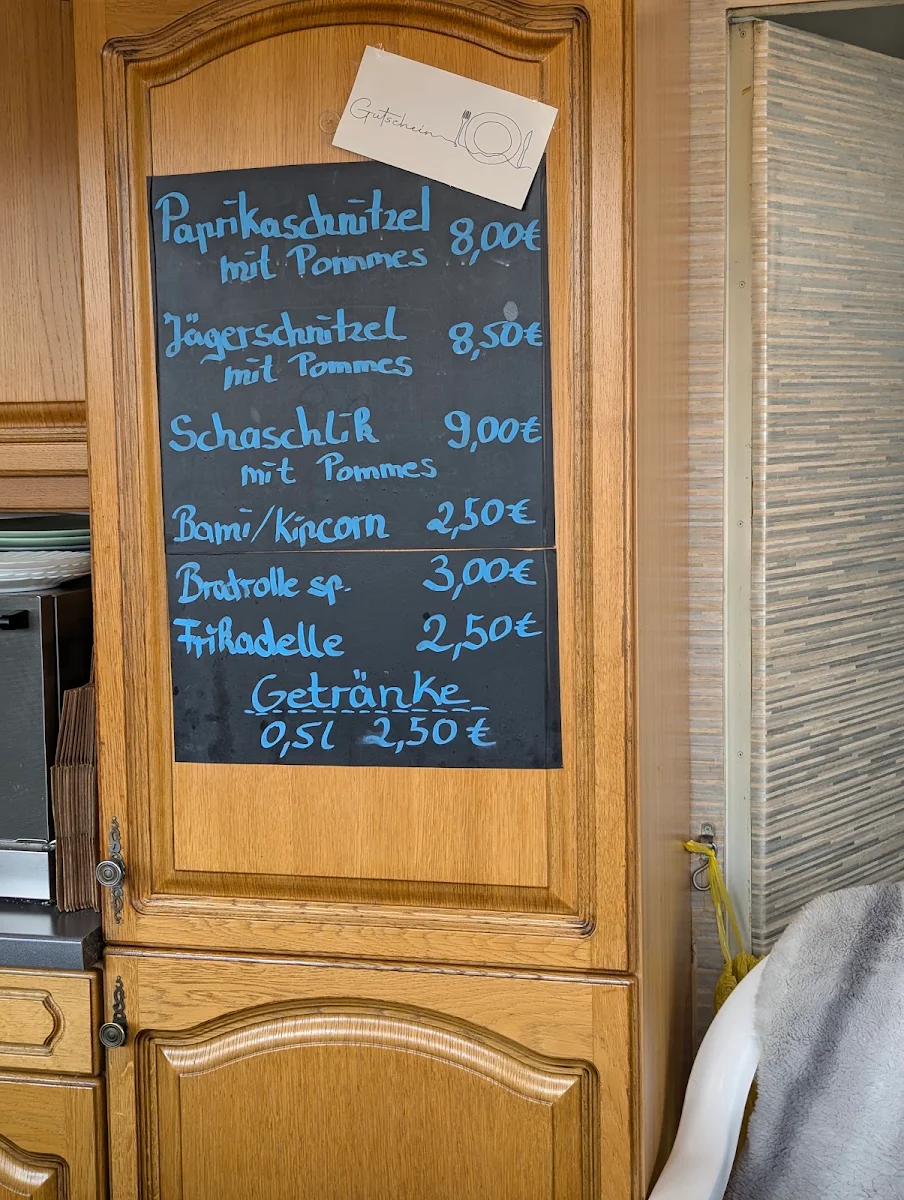 Gutschein
Paprikaschnitzel 8,00€
mit Pommes
Jägerschnitzel 8,50€
mit Pommes
Schaschlik 9,00€
mit Pommes
Bami/Kipcorn 2,50€
Bratrolle sp. 3,00€
Frikadelle 2,50€
Getränke
0,5l 2,50€